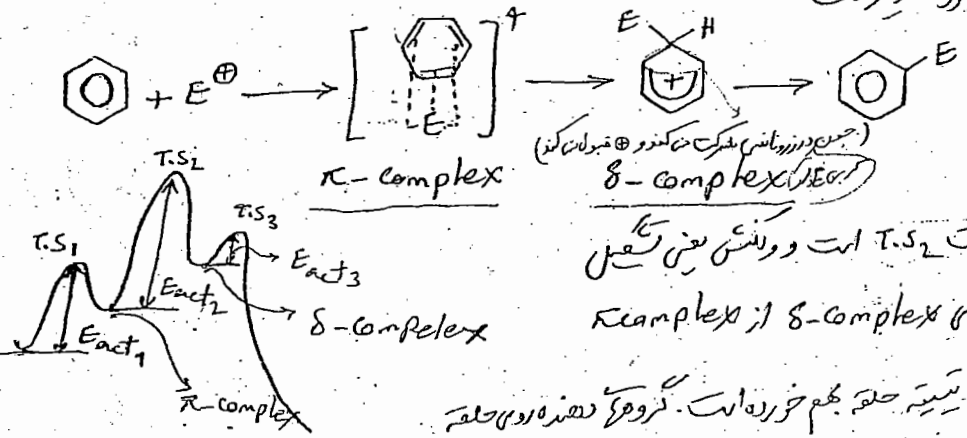 + E⊕
E
+
E H
+
E
(چون در رزونانس شرکت می‌کند و ⊕ قبول می‌کند)
π-complex
δ-complex
T.S1
T.S2
T.S3
Eact1
Eact2
Eact3
δ-compelex
π-complex
T.S2 است و واکنش یعنی تشکیل
δ-complex از πcomplex
حلقه بهم خورده است. گروههای دهنده روی حلقه